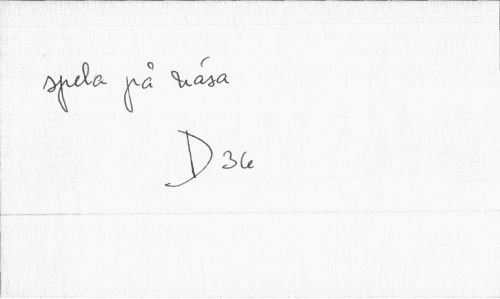 spela på näsa
D 36